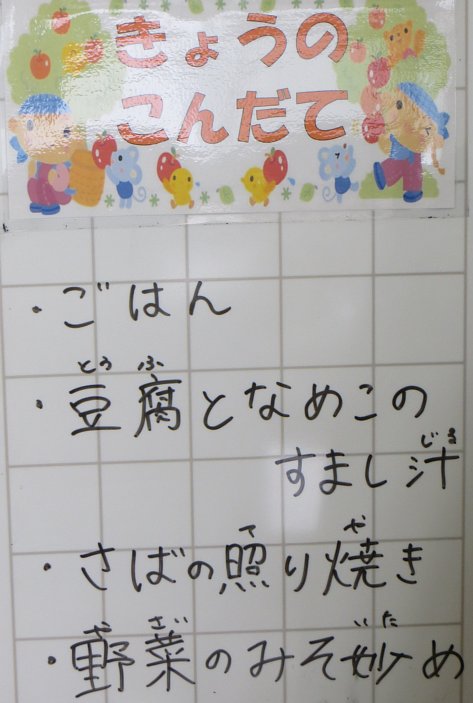 きょうの
こんだて
・ごはん
・豆腐となめこの
すまし汁
・さばの照り焼き
・野菜のみそ炒め